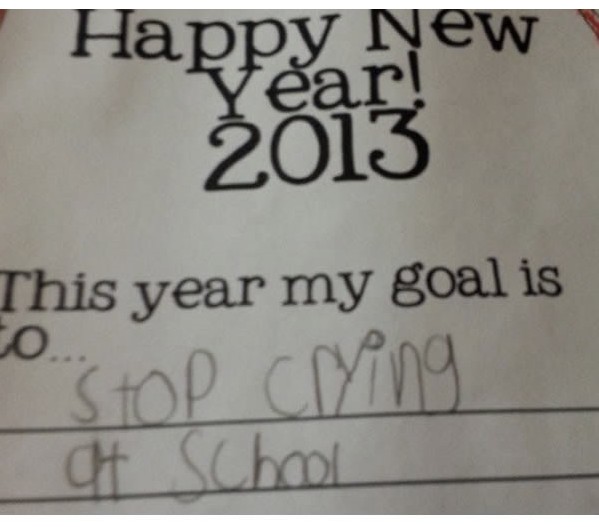 Happy New
Year!
2013
This year my goal is
to...
Stop crying
at School